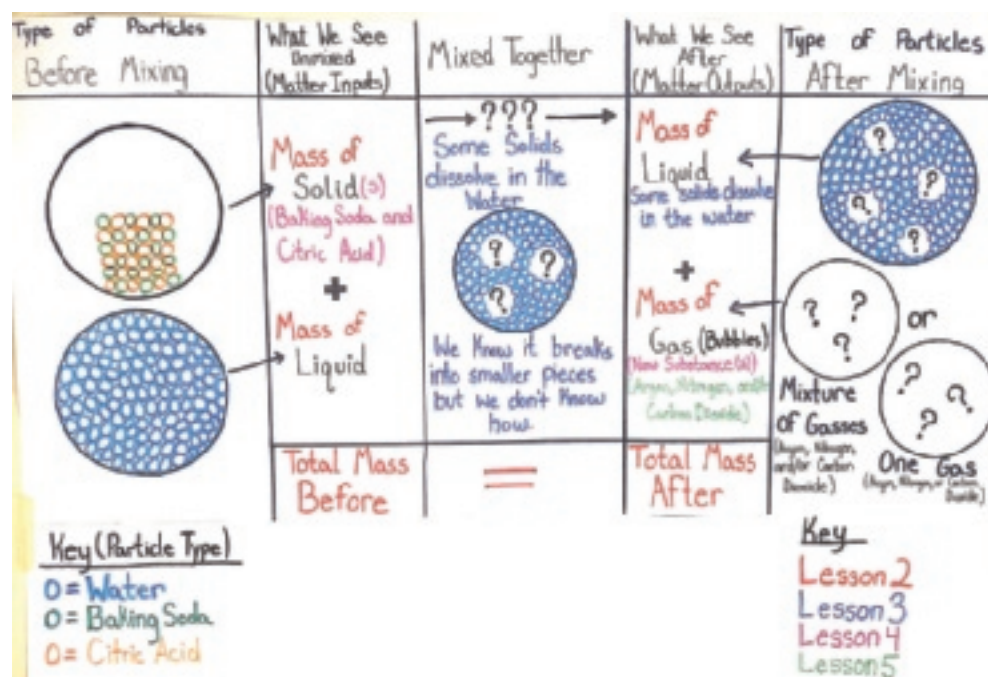 Type of Particles
Before Mixing
What We See
Unmixed
(Matter Inputs)
Mixed Together
What We See
After
(Matter Outputs)
Type of Particles
After Mixing
Mass of
Solid(s)
(Baking Soda and
Citric Acid)
+
Mass of
Liquid
→ ??? →
Some Solids
dissolve in the
Water
? ?
?
We Know it breaks
into smaller pieces
but we don't Know
how.
Mass of
Liquid
Some solids dissolve
in the water
+
Mass of
Gas (Bubbles)
(New Substance(s))
(Argon, Nitrogen, and/or
Carbon Dioxide)
?
?
?
?
? ?
?
or
? ?
?
Mixture
of Gasses
(Argon, Nitrogen,
and/or Carbon
Dioxide)
One Gas
(Argon, Nitrogen, or Carbon
Dioxide)
Total Mass
Before
=
Total Mass
After
Key (Particle Type)
O = Water
O = Baking Soda
O = Citric Acid
Key
Lesson 2
Lesson 3
Lesson 4
Lesson 5